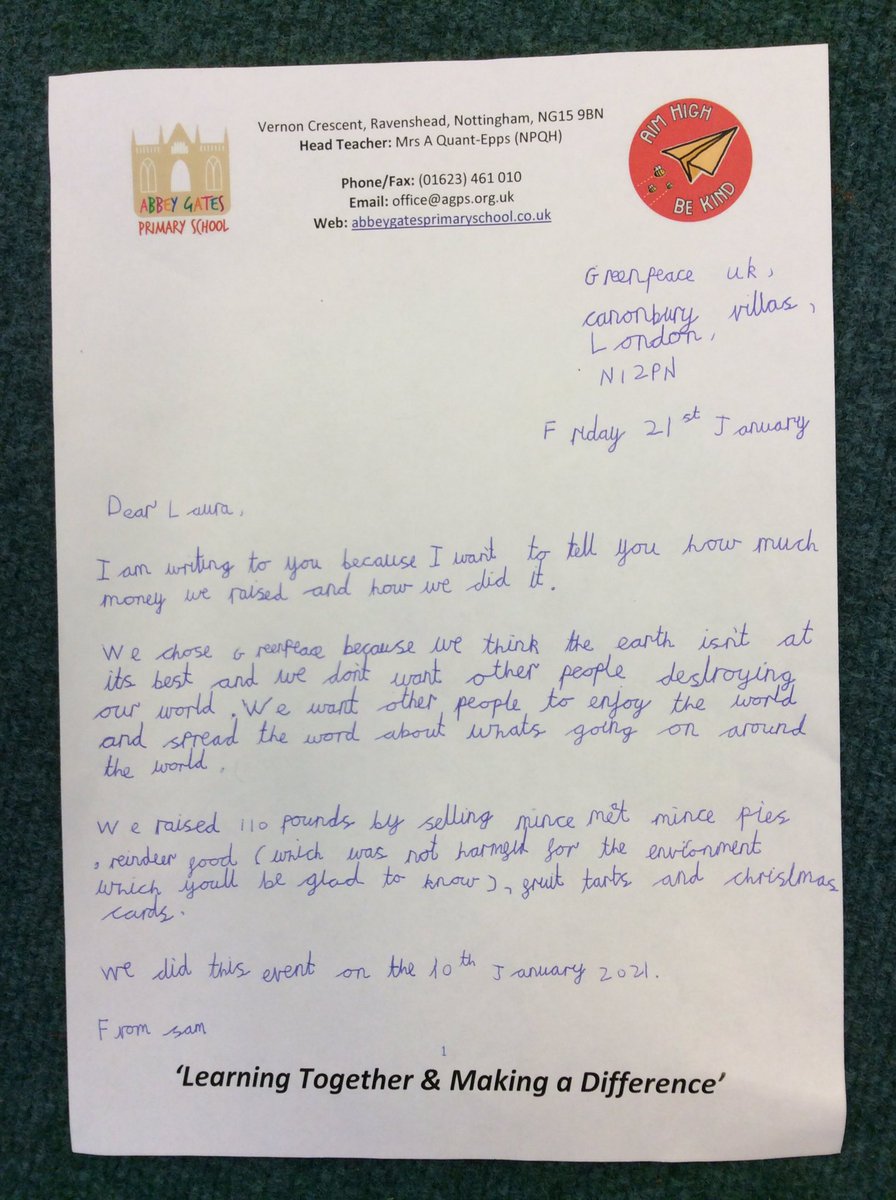 ABBEY GATES
PRIMARY SCHOOL
Vernon Crescent, Ravenshead, Nottingham, NG15 9BN
Head Teacher: Mrs A Quant-Epps (NPQH)
Phone/Fax: (01623) 461 010
Email: office@agps.org.uk
Web: abbeygatesprimaryschool.co.uk
AIM HIGH
BE KIND
Greenpeace uk,
canonbury villas,
London,
N12PN
Friday 21st January
Dear Laura,
I am writing to you because I want to tell you how much
money we raised and how we did it.
We chose Greenpeace because we think the earth isn't at
its best and we don't want other people destroying
our world. We want other people to enjoy the world
and spread the word about whats going on around
the world.
We raised 110 pounds by selling mince mince pies
, reindeer food (which was not for the
which youll be glad to know), fruit tarts and christmas
cards.
We did this event on the 10th January 2021.
From sam
1
'Learning Together & Making a Difference'